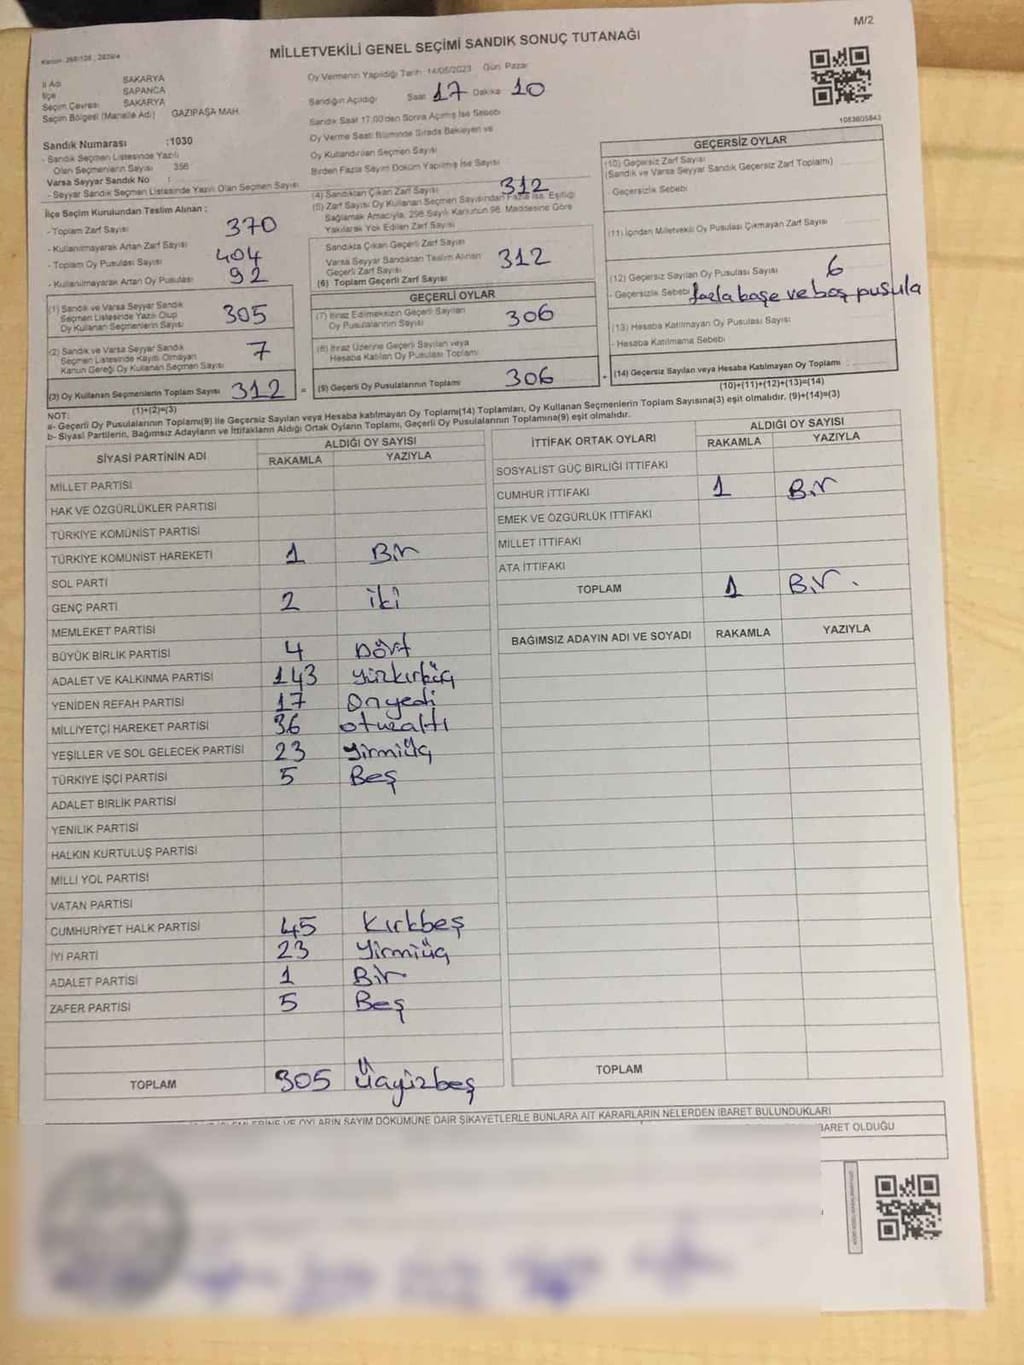 M/2
MİLLETVEKİLİ GENEL SEÇİMİ SANDIK SONUÇ TUTANAĞI
İl Adı SAKARYA
İlçe SAPANCA
Seçim Çevresi SAKARYA
Seçim Bölgesi (Mahalle Adı) GAZİPAŞA MAH.
Sandık Numarası :1030
- Sandık Seçmen Listesinde Yazılı
Olan Seçmenlerin Sayısı 356
Varsa Seyyar Sandık No :
- Seyyar Sandık Seçmen Listesinde Yazılı Olan Seçmen Sayısı
İlçe Seçim Kurulundan Teslim Alınan :
- Toplam Zarf Sayısı 370
- Kullanılmayarak Artan Zarf Sayısı
- Toplam Oy Pusulası Sayısı 404
- Kullanılmayarak Artan Oy Pusulası 92
(1) Sandık ve Varsa Seyyar Sandık
Seçmen Listesinde Yazılı Olup
Oy Kullanan Seçmenlerin Sayısı 305
(2) Sandık ve Varsa Seyyar Sandık
Seçmen Listesinde Kayıtlı Olmayan
Kanun Gereği Oy Kullanan Seçmen Sayısı 7
(3) Oy Kullanan Seçmenlerin Toplam Sayısı 312
(1)+(2)=(3)
Oy Vermenin Yapıldığı Tarih 14/05/2023 Gün Pazar
Sandığın Açıldığı Saat 17 Dakika 10
Sandık Saat 17:00'den Sonra Açılmış İse Sebebi
Oy Verme Saati Bitiminde Sırada Bekleyen ve
Oy Kullandırılan Seçmen Sayısı
Birden Fazla Sayım Döküm Yapılmış İse Sayısı
(4) Sandıktan Çıkan Zarf Sayısı 312
(5) Zarf Sayısı Oy Kullanan Seçmen Sayısından Fazla İse, Eşitliği
Sağlamak Amacıyla, 298 Sayılı Kanunun 98. Maddesine Göre
Yakılarak Yok Edilen Zarf Sayısı
Sandıkta Çıkan Geçerli Zarf Sayısı
Varsa Seyyar Sandıktan Teslim Alınan
Geçerli Zarf Sayısı
(6) Toplam Geçerli Zarf Sayısı 312
GEÇERLİ OYLAR
(7) İtiraz Edilmeksizin Geçerli Sayılan
Oy Pusulalarının Sayısı 306
(8) İtiraz Üzerine Geçerli Sayılan veya
Hesaba Katılan Oy Pusulası Toplamı
(9) Geçerli Oy Pusulalarının Toplamı 306
1083605843
GEÇERSİZ OYLAR
(10) Geçersiz Zarf Sayısı
(Sandık ve Varsa Seyyar Sandık Geçersiz Zarf Toplamı)
Geçersizlik Sebebi
(11) İçinden Milletvekili Oy Pusulası Çıkmayan Zarf Sayısı
(12) Geçersiz Sayılan Oy Pusulası Sayısı 6
- Geçersizlik Sebebi fazla başe ve boş pusula
(13) Hesaba Katılmayan Oy Pusulası Sayısı
- Hesaba Katılmama Sebebi
(14) Geçersiz Sayılan veya Hesaba Katılmayan Oy Toplamı
(10)+(11)+(12)+(13)=(14)
NOT:
a- Geçerli Oy Pusulalarının Toplamı(9) ile Geçersiz Sayılan veya Hesaba katılmayan Oy Toplamı(14) Toplamları, Oy Kullanan Seçmenlerin Toplam Sayısına(3) eşit olmalıdır. (9)+(14)=(3)
b- Siyasi Partilerin, Bağımsız Adayların ve İttifakların Aldığı Ortak Oyların Toplamı, Geçerli Oy Pusulalarının Toplamına(9) eşit olmalıdır.
SİYASİ PARTİNİN ADI ALDIĞI OY SAYISI
RAKAMLA YAZIYLA
MİLLET PARTİSİ
HAK VE ÖZGÜRLÜKLER PARTİSİ
TÜRKİYE KOMÜNİST PARTİSİ
TÜRKİYE KOMÜNİST HAREKETİ 1 Bir
SOL PARTİ
GENÇ PARTİ 2 iki
MEMLEKET PARTİSİ
BÜYÜK BİRLİK PARTİSİ 4 Dört
ADALET VE KALKINMA PARTİSİ 143 yüzkırküç
YENİDEN REFAH PARTİSİ 17 Onyedi
MİLLİYETÇİ HAREKET PARTİSİ 36 otuzaltı
YEŞİLLER VE SOL GELECEK PARTİSİ 23 yirmiüç
TÜRKİYE İŞÇİ PARTİSİ 5 Beş
ADALET BİRLİK PARTİSİ
YENİLİK PARTİSİ
HALKIN KURTULUŞ PARTİSİ
MİLLİ YOL PARTİSİ
VATAN PARTİSİ
CUMHURİYET HALK PARTİSİ 45 Kırkbeş
İYİ PARTİ 23 yirmiüç
ADALET PARTİSİ 1 Bir
ZAFER PARTİSİ 5 Beş
TOPLAM 305 Üçyüzbeş
İTTİFAK ORTAK OYLARI ALDIĞI OY SAYISI
RAKAMLA YAZIYLA
SOSYALİST GÜÇ BİRLİĞİ İTTİFAKI
CUMHUR İTTİFAKI 1 Bir
EMEK VE ÖZGÜRLÜK İTTİFAKI
MİLLET İTTİFAKI
ATA İTTİFAKI
TOPLAM 1 Bir.
BAĞIMSIZ ADAYIN ADI VE SOYADI RAKAMLA YAZIYLA
TOPLAM
OYLARIN SAYIM DÖKÜMÜNE DAİR ŞİKAYETLERLE BUNLARA AİT KARARLARIN NELERDEN İBARET BULUNDUKLARI
İBARET OLDUĞU